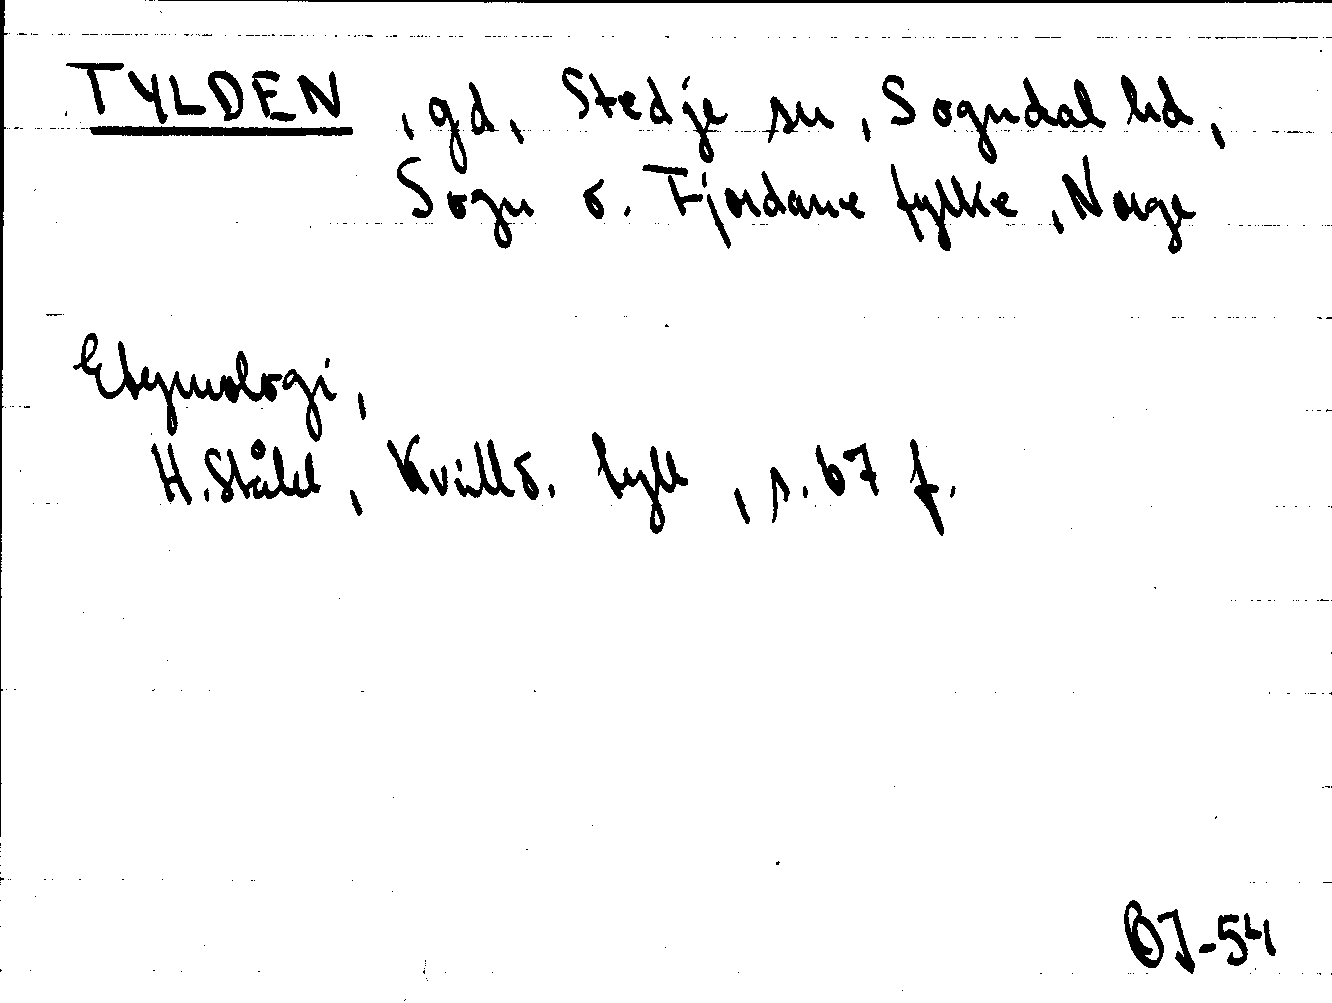 TYLDEN, gd, Stedje sn, Sogndal hd,
Sogn o. Fjordane fylke, Norge
Etymologi,
H. Ståhl, Kvill o. tyll, s. 67 f.
OJ-54